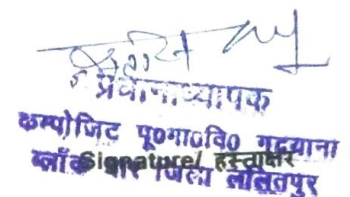 प्रधानाध्यापक
कम्पोजिट पू०मा०वि० गदयाना
ब्लॉक बार जिला ललितपुर
Signature/ हस्ताक्षर